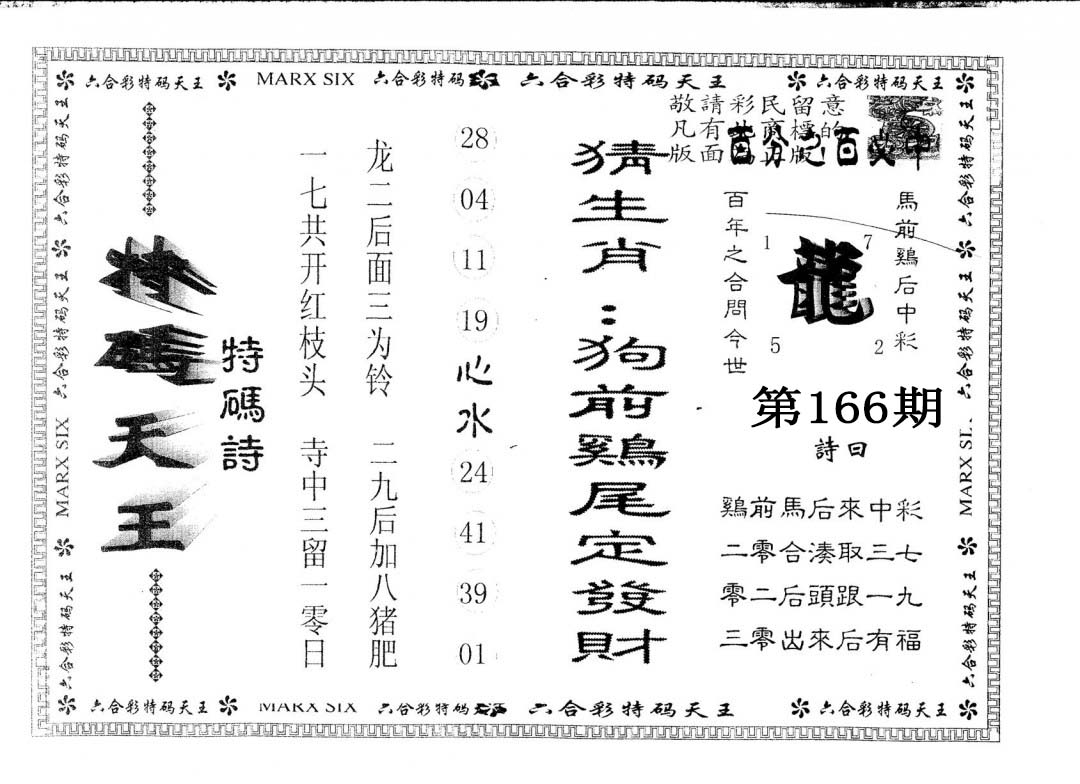 六合彩特码天王 MARX SIX 六合彩特码 六合彩特码天王 六合彩特码天王
敬請彩民留意
凡有
版面
百分之百
馬前鷄后中彩
龍
1 7 5 2
百年之合問今世
第166期
詩曰
鷄前馬后來中彩
二零合湊取三七
零二后頭跟一九
三零出來后有福
猜生肖：狗前鷄尾定發財
28
04
11
19
心水
24
41
39
01
龙二后面三为铃 二九后加八猪肥
一七共开红枝头 寺中三留一零日
特碼詩
特碼天王
六合彩特码天王 六合彩特码天王 MARX SIX 六合彩特码天王
六合彩特码天王 六合彩特码天王 MARX SI 六合彩特码天王
六合彩特码天王 MARX SIX 六合彩特码 六合彩特码天王 六合彩特码天王